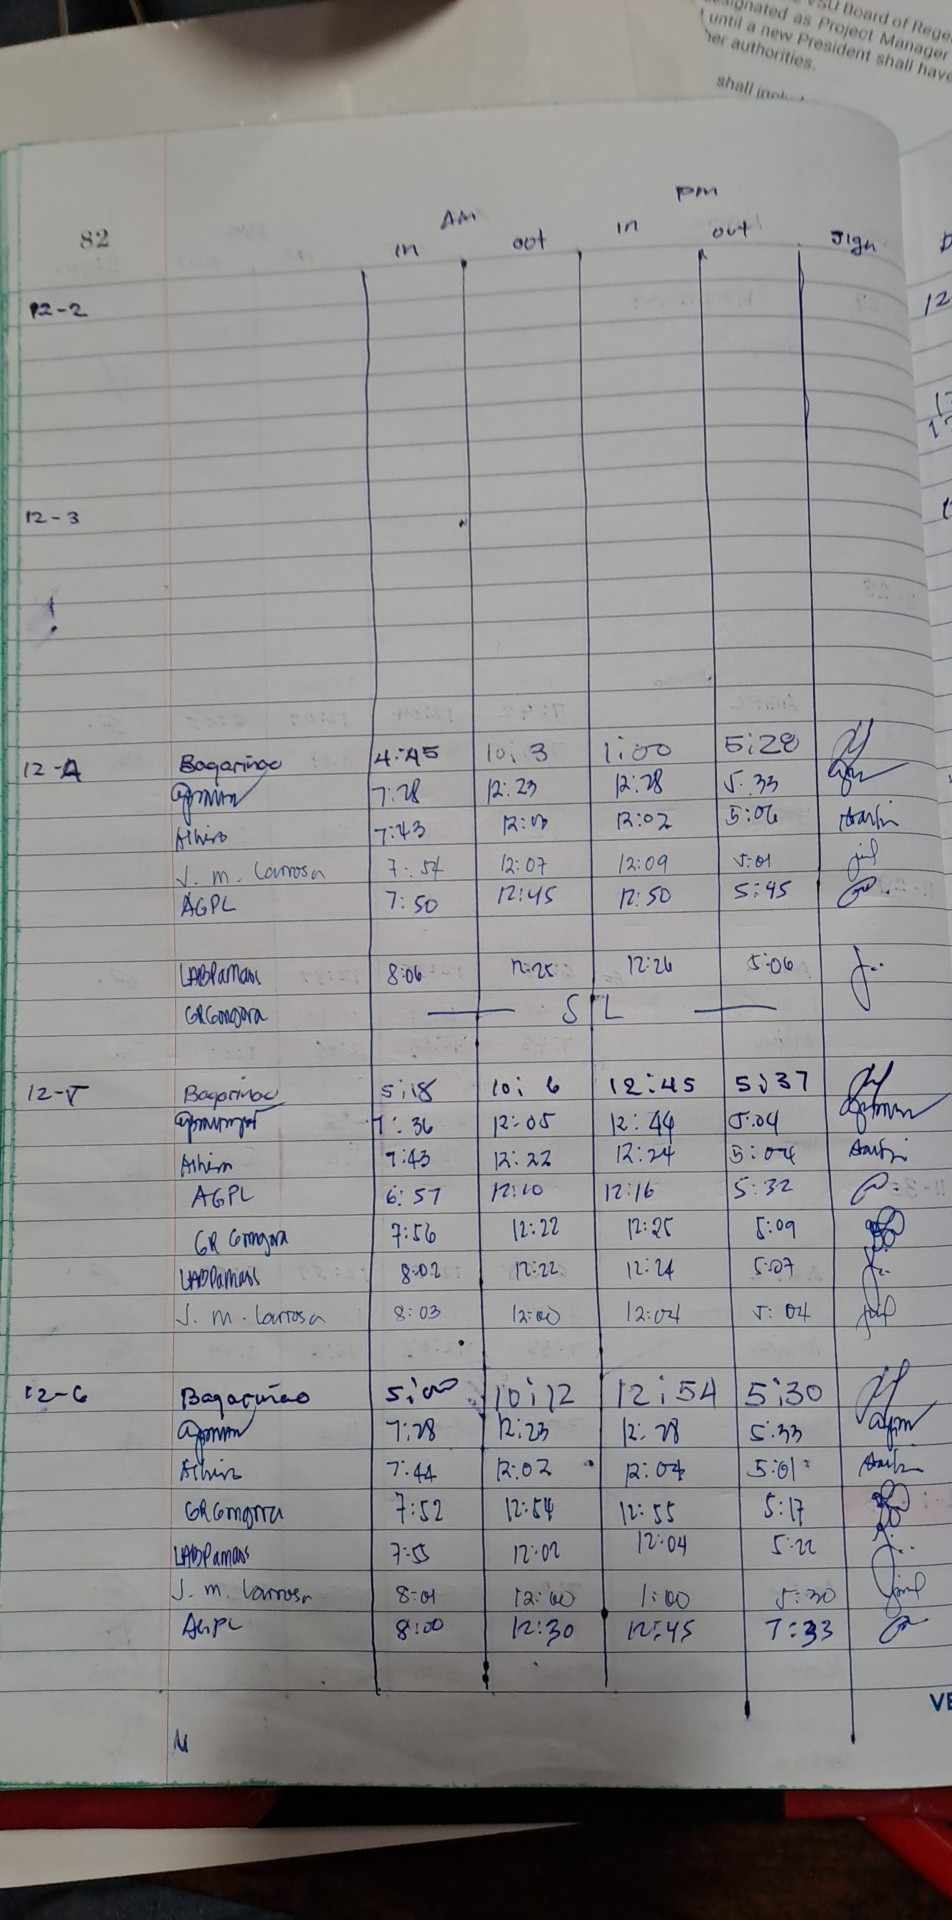 VSU Board of Rege
esignated as Project Manager
until a new President shall have
her authorities.
shall
82
AM
PM
in out in out Sign
12-2
12-3
12-4 Bagarinao 4:45 10:3 1:00 5:28
7:28 12:23 12:28 5:33
7:43 12:00 12:02 5:06
J. M. Larrosa 7:54 12:07 12:09 5:01
AGPL 7:50 12:45 12:50 5:45
8:06 12:25 12:26 5:06
GRGongora SL
12-5 Bagarinao 5:18 10:6 12:45 5:37
7:36 12:05 12:44 5:04
7:43 12:22 12:24 5:04
AGPL 6:57 12:10 12:16 5:32
GR Gongora 7:56 12:22 12:25 5:09
8:02 12:22 12:24 5:07
J. M. Larrosa 8:03 12:00 12:04 5:04
12-6 Bagarinao 5:00 10:12 12:54 5:30
7:28 12:23 12:28 5:33
7:44 12:02 12:04 5:01
GRGongora 7:52 12:54 12:55 5:17
7:55 12:02 12:04 5:22
J. M. Larrosa 8:01 12:00 1:00 5:30
AGPL 8:00 12:30 12:45 7:33
VE